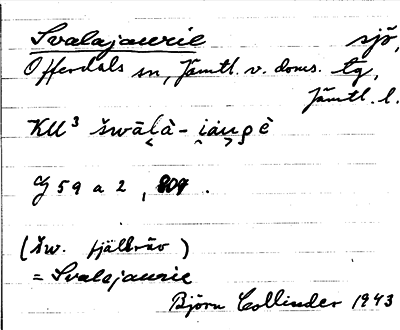 Svalajaurie sjö,
Offerdals sn, Jämtl. v. doms. tg,
Jämtl. l.
KU³ šwālà-
G 59 a 2, 809.
(šw. fjällräv)
= Svalajaurie
Björn Collinder 1943